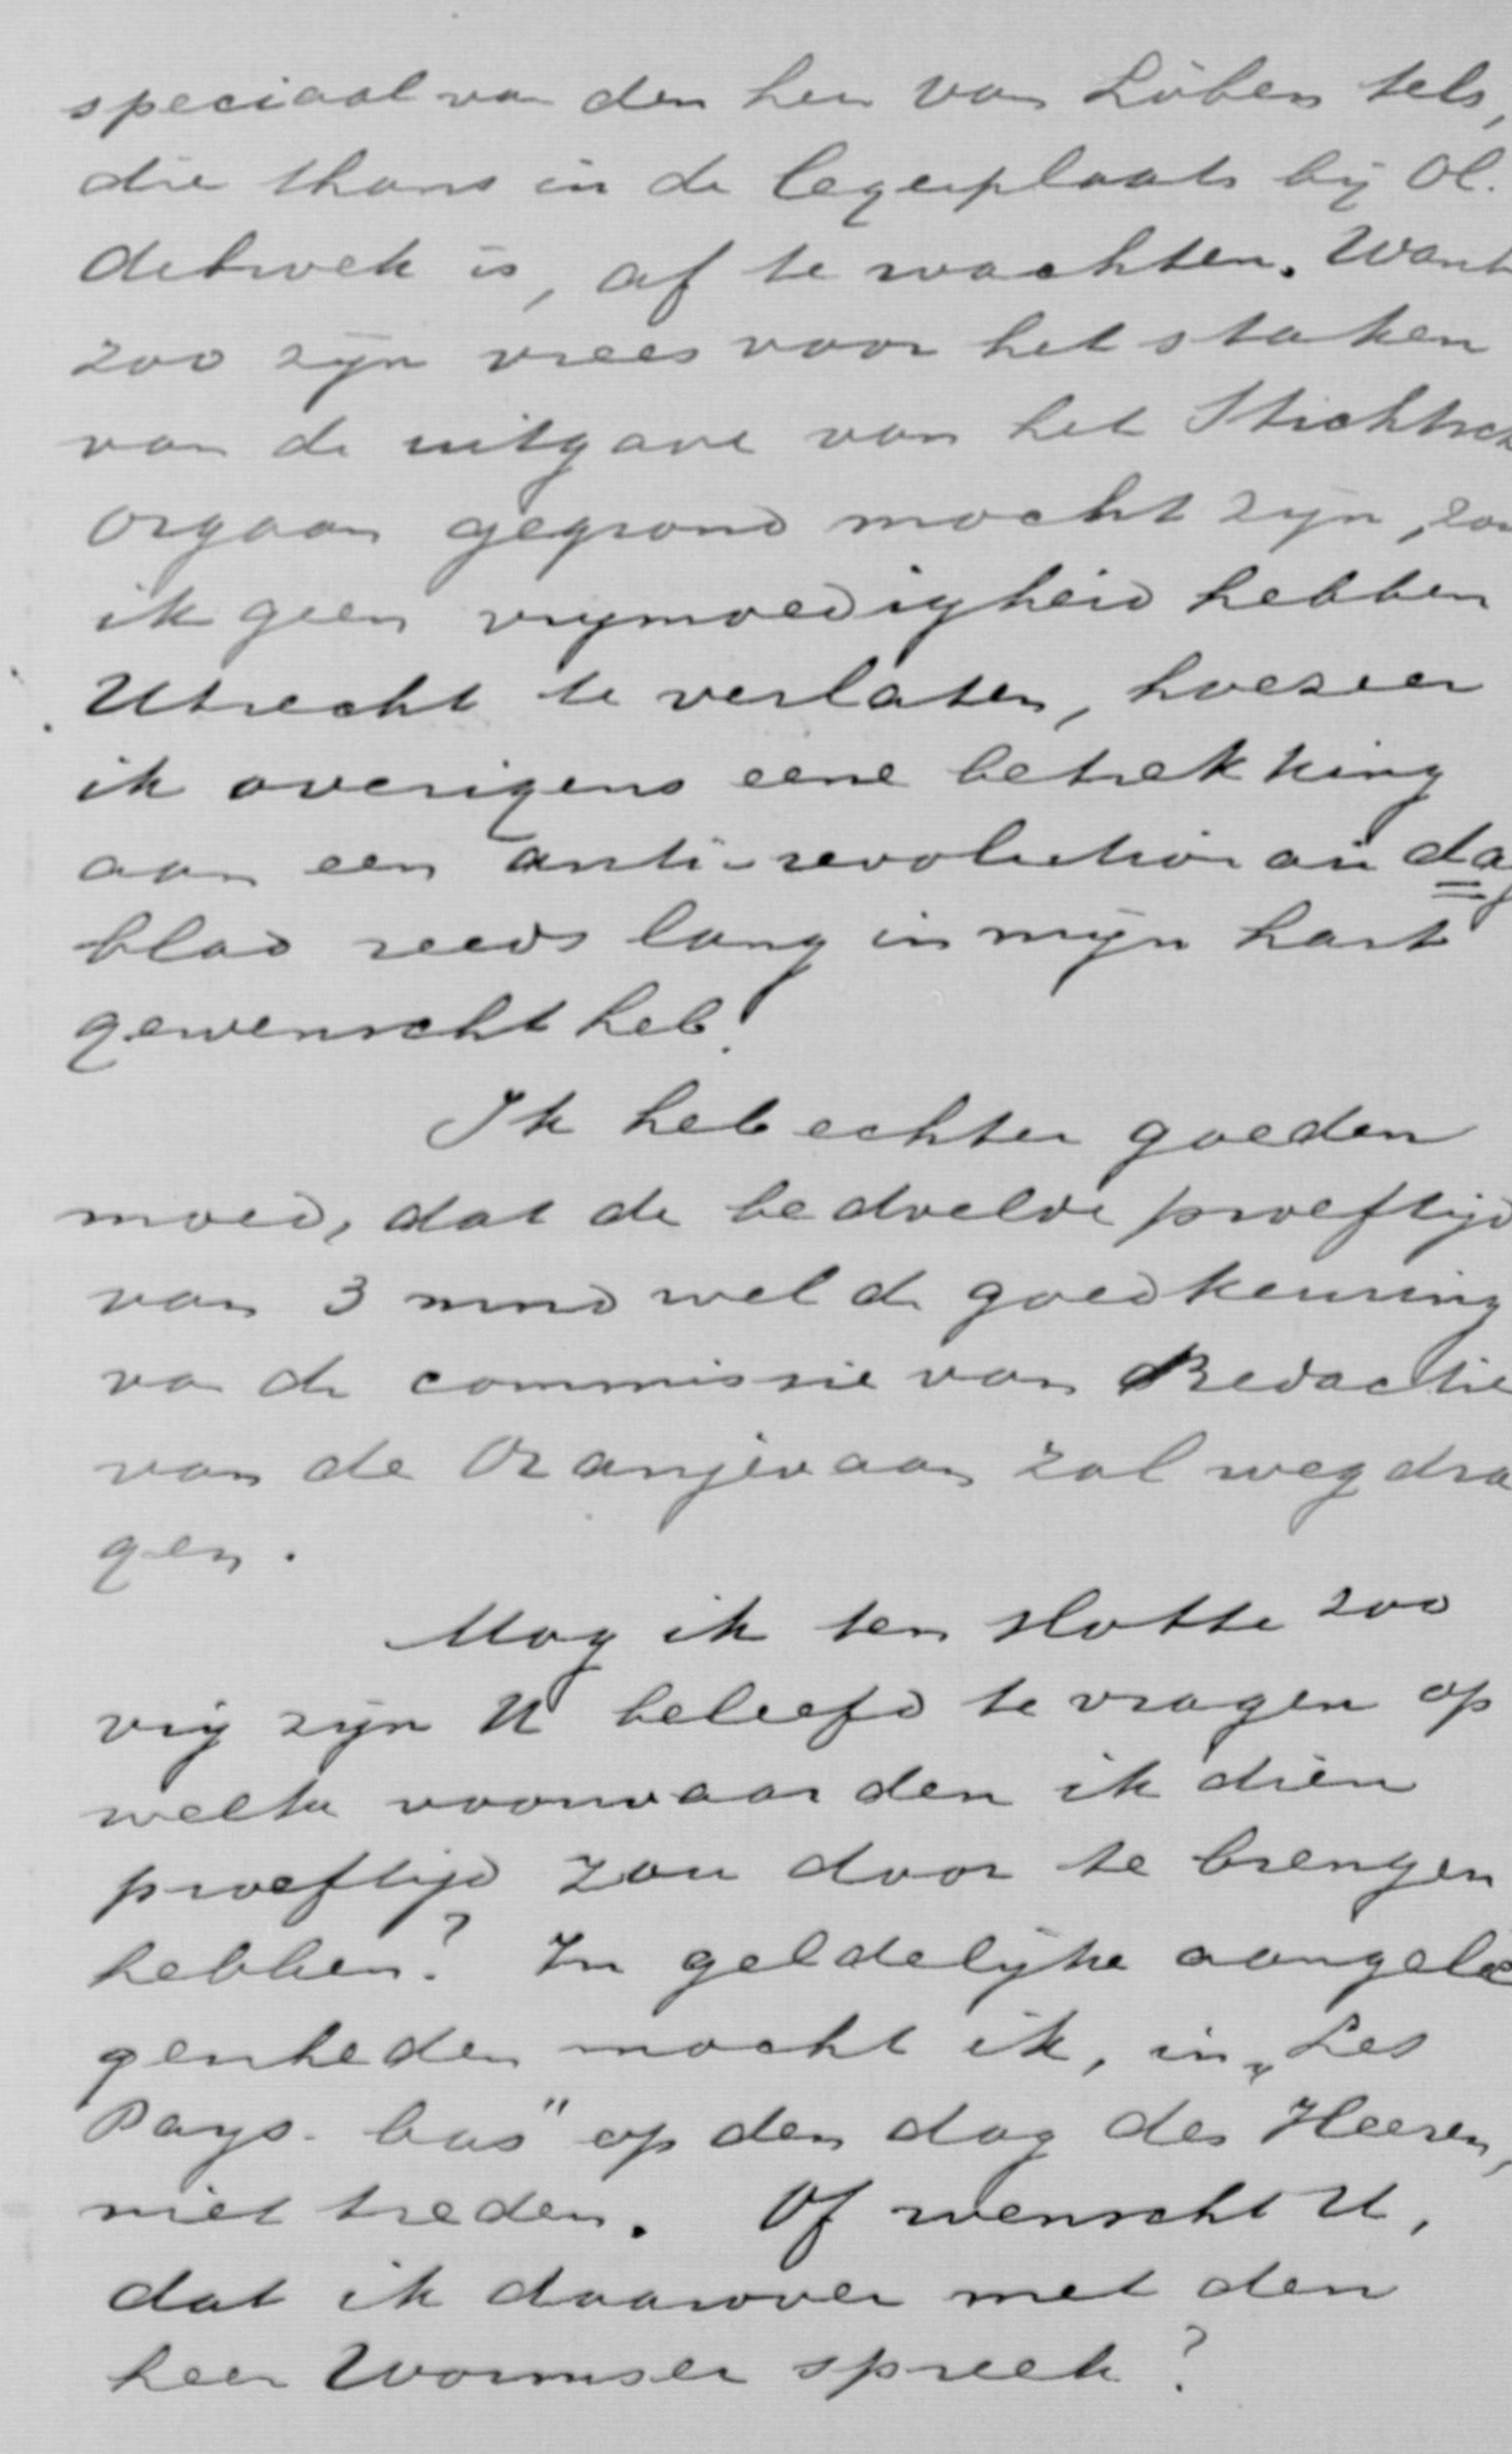 speciaal van den heer van Löben Sels,
die thans in de legerplaats bij Ol.
debroek is, af te wachten. Want
zoo zijn vrees voor het staken
van de uitgave van het Stichtsch
Orgaan gegrond mocht zijn, zou
ik geen vrijmoedigheid hebben
Utrecht te verlaten, hoezeer
ik overigens eene betrekking
aan een anti-revolutionair dag
blad reeds lang in mijn hart
gewenscht heb!
Ik heb echter goeden
moed, dat de bedoelde proeftijd
van 3 mnd wel de goedkeuring
van de commissie van Redactie
van de Oranjevaan zal wegdra
gen.
Mag ik ten slotte zoo
vrij zijn U beleefd te vragen op
welke voorwaarden ik dien
proeftijd zou door te brengen
hebben? In geldelijke aangele
genheden mocht ik, in „Les
Pays-bas" op den dag des Heeren,
niet treden. Of wenscht U,
dat ik daarover met den
heer Wormser spreek?